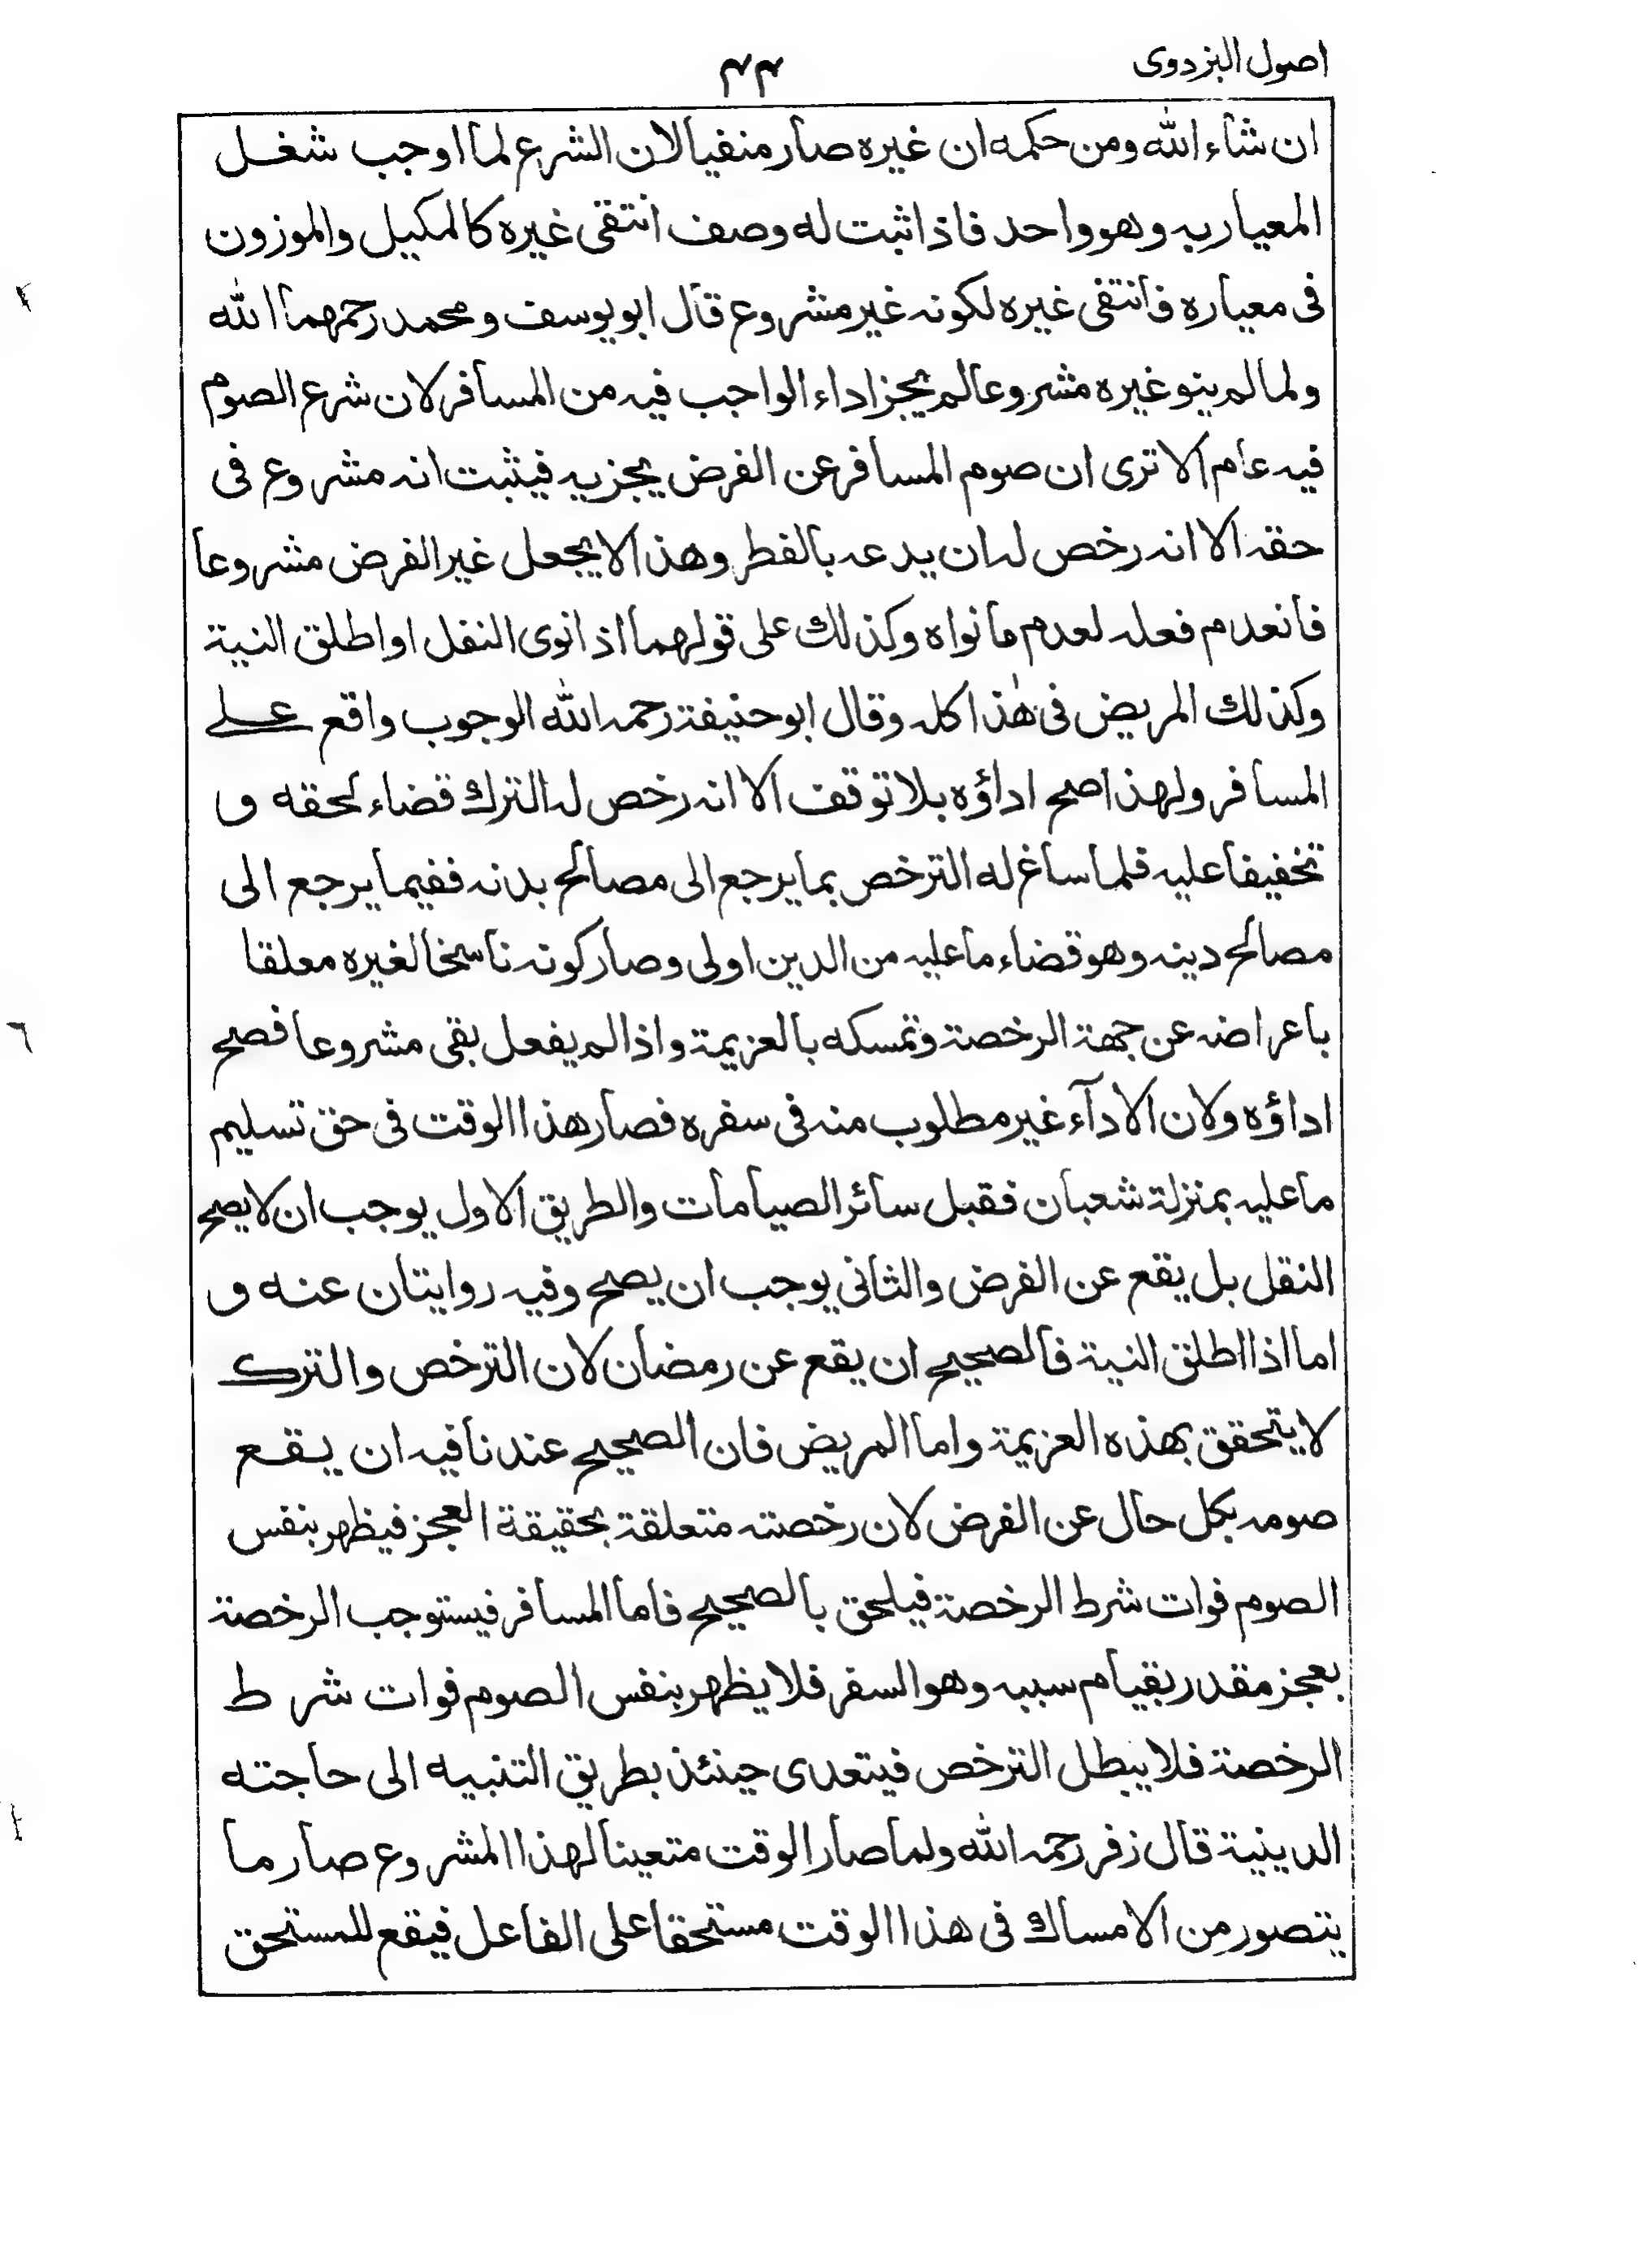 اصول البزدوی
۴۴
ان شاء الله ومن حكمه ان غيره صار منفيا لان الشرع لما اوجب شغل
المعيار به وهو واحد فاذا ثبت له وصف انتقى غيره كالمكيل والموزون
فى معياره فانتفى غيره لكونه غير مشروع قال ابو يوسف ومحمد رحمهما الله
ولما لم ينو غيره مشروعا لم يجز اداء الواجب فيه من المسافر لان شرع الصوم
فيه عام الا ترى ان صوم المسافر عن الفرض يجزيه فيثبت انه مشروع فى
حقه الا انه رخص له ان يدعه بالفطر وهذا لا يجعل غير الفرض مشروعا
فانعدم فعله لعدم ما نواه وكذلك على قولهما اذا نوى النفل او اطلق النية
وكذلك المريض فى هٰذا كله وقال ابو حنيفة رحمه الله الوجوب واقع علے
المسافر ولهذا صح اداؤه بلا توقف الا انه رخص له الترك قضاء لحقه و
تخفيفا عليه فلما ساغ له الترخص بما يرجع الى مصالح بدنه ففيما يرجع الى
مصالح دينه وهو قضاء ما عليه من الدين اولى وصار كونه ناسخا لغيره معلقا
باعراضه عن جهة الرخصة وتمسكه بالعزيمة واذا لم يفعل بقى مشروعا فصح
اداؤه ولان الادآء غير مطلوب منه فى سفره فصار هذا الوقت فى حق تسليم
ما عليه بمنزلة شعبان فقبل سائر الصيامات والطريق الاول يوجب ان لا يصح
النقل بل يقع عن الفرض والثانى يوجب ان يصح وفيه روايتان عنه و
اما اذا اطلق النية فالصحيح ان يقع عن رمضان لان الترخص والترك
لا يتحقق بهذه العزيمة واما المريض فان الصحيح عندنا فيه ان يقع
صومه بكل حال عن الفرض لان رخصته متعلقة بحقيقة العجز فيظهر بنفس
الصوم فوات شرط الرخصة فيلحق بالصحيح فاما المسافر فيستوجب الرخصة
بعجز مقدر بقيام سببه وهو السفر فلا يظهر بنفس الصوم فوات شرط
الرخصة فلا يبطل الترخص فيتعدى حينئذ بطريق التنبيه الى حاجته
الدينية قال زفر رحمه الله ولما صار الوقت متعينا لهذا المشروع صار ما
يتصور من الامساك فى هذا الوقت مستحقا على الفاعل فيقع للمستحق